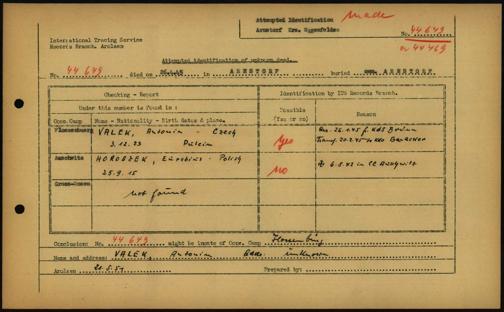 Attempted Identification made
Arnstorf Krs. Eggenfelden
International Tracing Service
Records Branch, Arolsen
No. 44 649
or 44 469
Attempted identification of unknown dead.
No. 44 649 died on in ARNSTORF buried ARNSTORF
Checking - Report
Identification by ITS Records Branch.
Under this number is found in:
Possible (yes or no)
Reason
Conc. Camp Name - Nationality - Birth dates & place.
Flossenbürg VALEK, Antonin - Czech
3.12.23
Yes
Arr. 26.1.45 f. Kdo
Transf. 20.2.45 to Kdo
Auschwitz HOROSZEK, - Polish
25.9.15
no
6.5.42 in CC Auschwitz
Gross-Rosen
not found
Conclusion: No. 44 649 might be inmate of Conc. Camp Flossenbürg
Name and address: VALEK, Antonin Addr. unknown
Arolsen Prepared by: